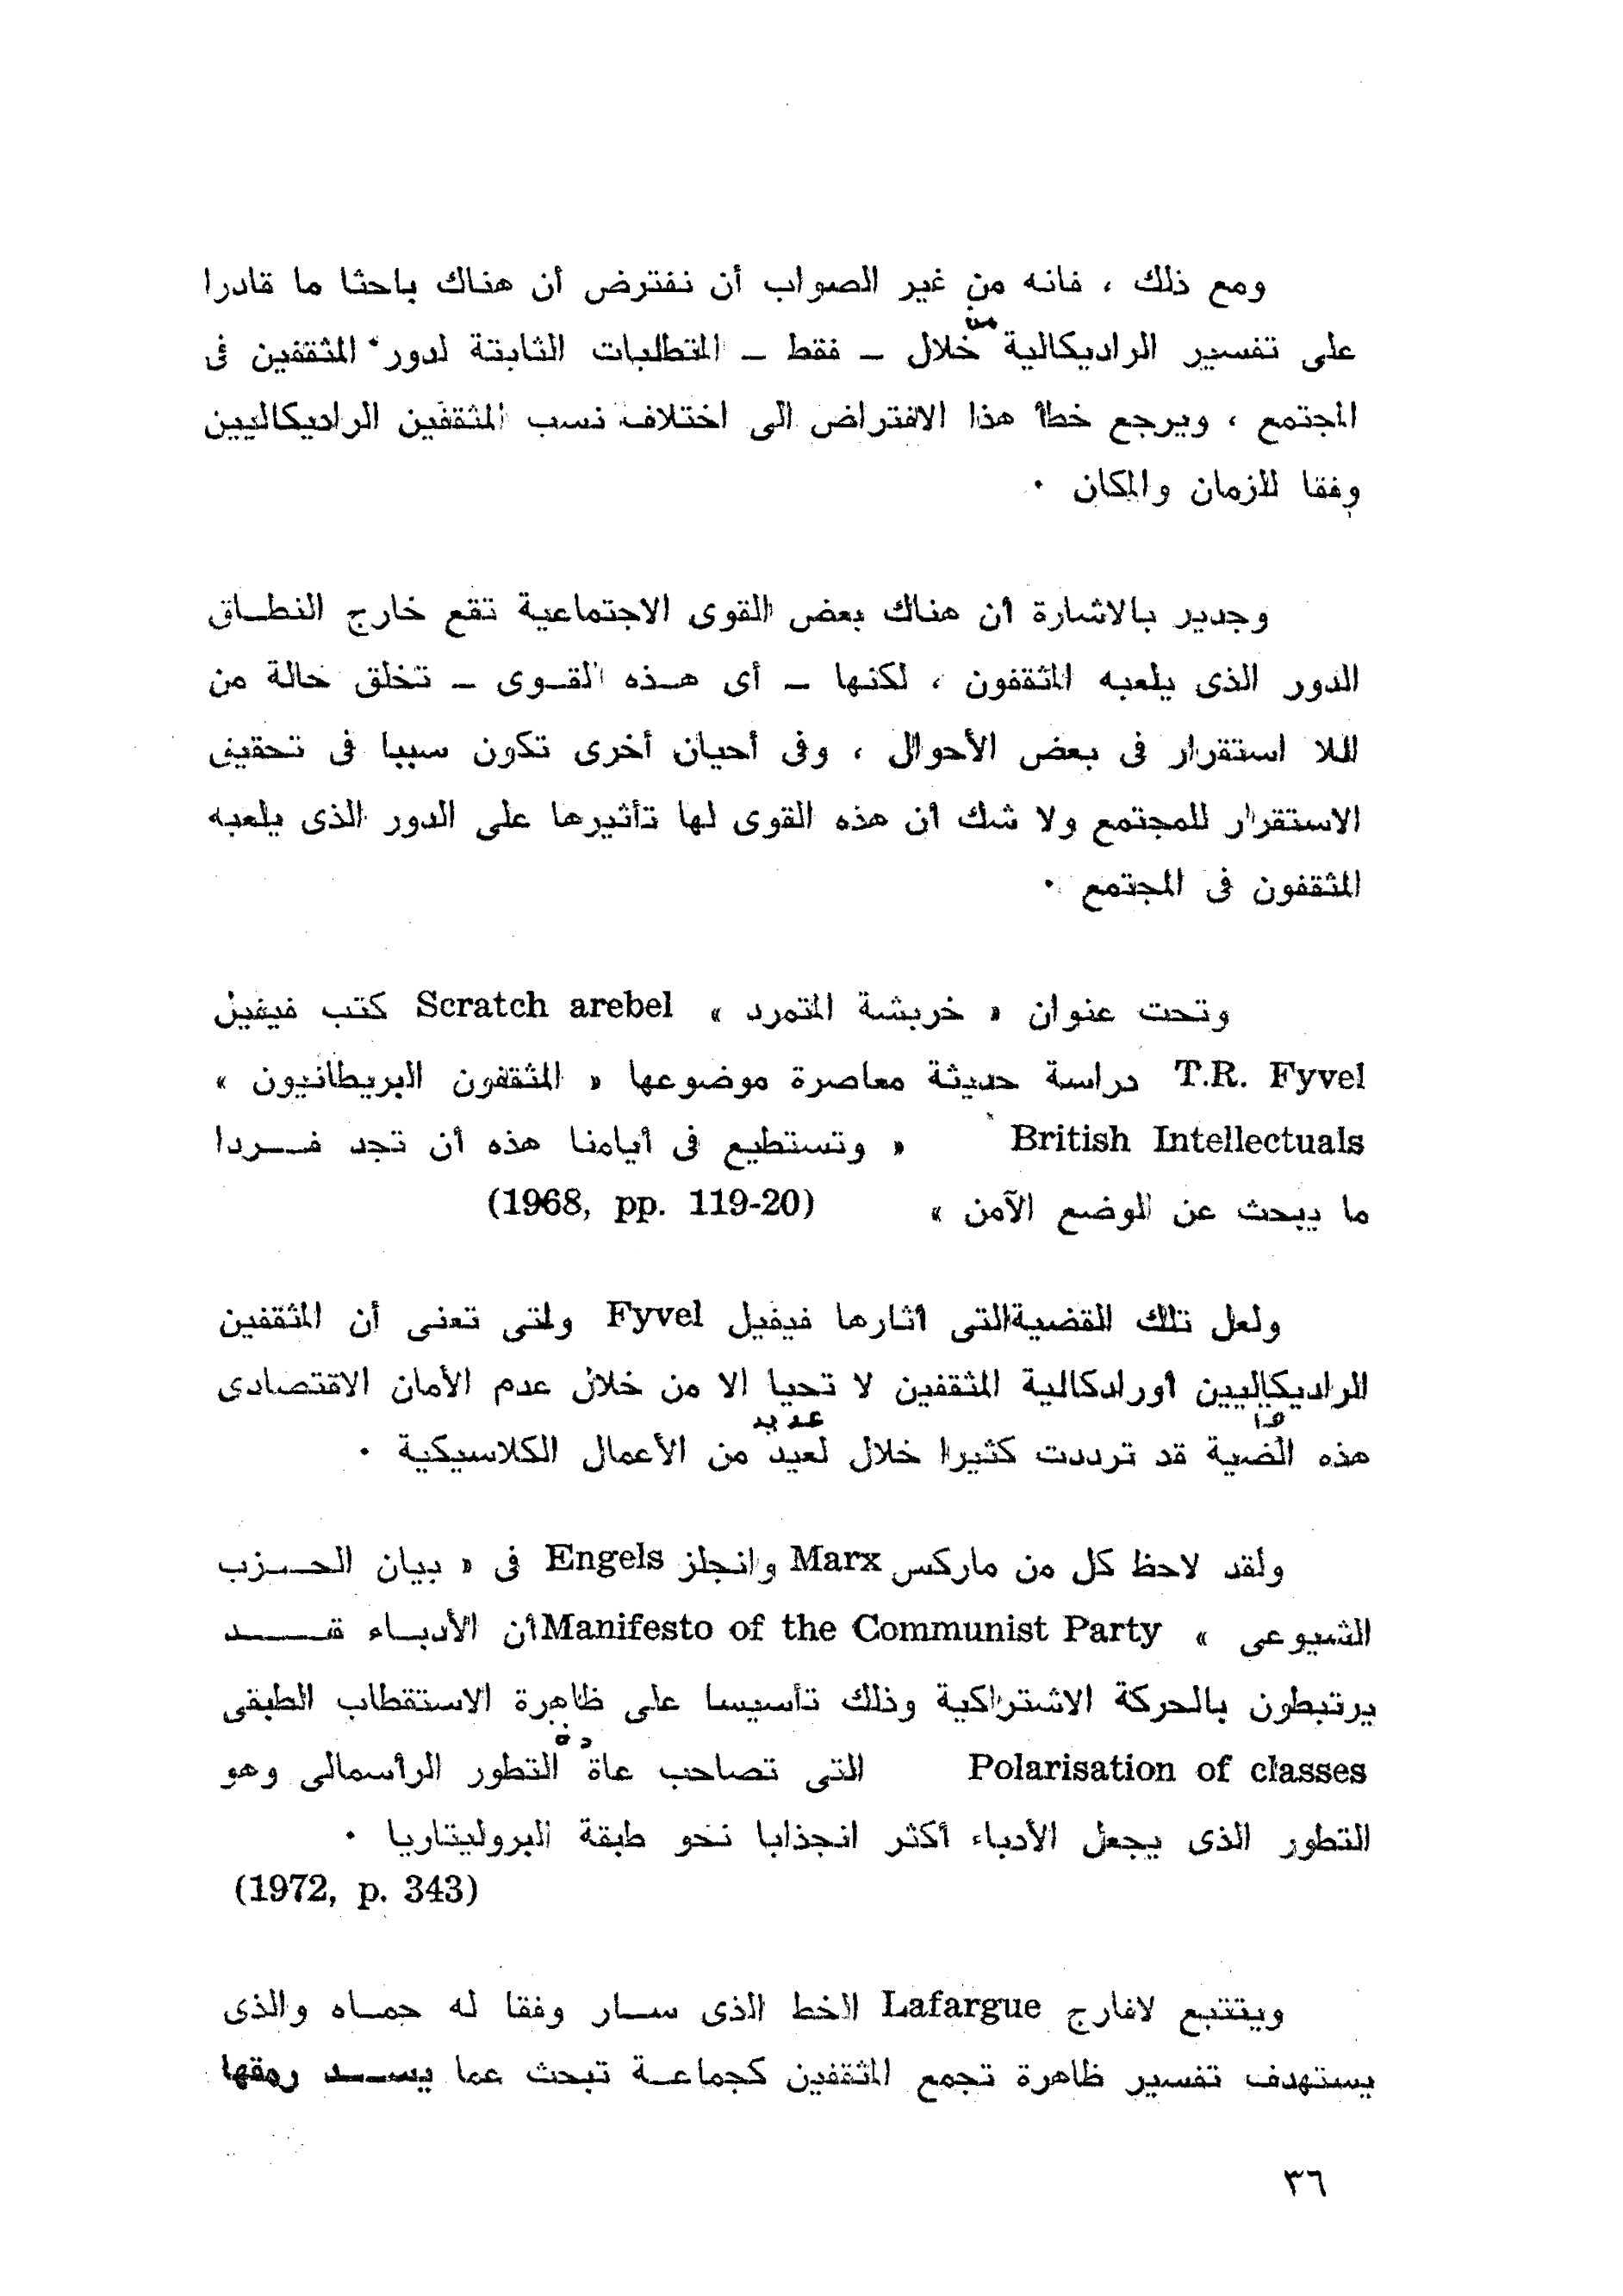 ومع ذلك ، فانه من غير الصواب أن نفترض أن هناك باحثا ما قادرا
على تفسير الراديكالية من خلال ــ فقط ــ المتطلبات الثابتة لدور المثقفين فى
المجتمع ، ويرجع خطأ هذا الافتراض الى اختلاف نسب المثقفين الراديكاليين
وفقا للزمان والمكان ٠
وجدير بالاشارة أن هناك بعض القوى الاجتماعية تقع خارج النطــاق
الدور الذى يلعبه المثقفون ، لكنها ــ أى هــذه القــوى ــ تخلق حالة من
اللا استقرار فى بعض الأحوال ، وفى أحيان أخرى تكون سببا فى تحقيق
الاستقرار للمجتمع ولا شك أن هذه القوى لها تأثيرها على الدور الذى يلعبه
المثقفون فى المجتمع ٠
وتحت عنوان « خربشة المتمرد » Scratch arebel كتب فيفيل
T.R. Fyvel دراسة حديثة معاصرة موضوعها « المثقفون البريطانيون »
British Intellectuals « وتستطيع فى أيامنا هذه أن تجد فــردا
ما يبحث عن الوضع الآمن » (1968, pp. 119-20)
ولعل تلك القضيةالتى أثارها فيفيل Fyvel ولتى تعنى أن المثقفين
الراديكاليين أورادكالية المثقفين لا تحيا الا من خلال عدم الأمان الاقتصادى
ها عديد
هذه الضية قد ترددت كثيرا خلال لعيد من الأعمال الكلاسيكية ٠
ولقد لاحظ كل من ماركس Marx وانجلز Engels فى « بيان الحــزب
الشيوعى » Manifesto of the Communist Party أن الأدبــاء قــــد
يرتبطون بالحركة الاشتراكية وذلك تأسيسا على ظاهرة الاستقطاب الطبقى
Polarisation of classes التى تصاحب عاة التطور الرأسمالى وهو
التطور الذى يجعل الأدباء أكثر انجذابا نحو طبقة البروليتاريا ٠
(1972, p. 343)
ويتتبع لافارج Lafargue الخط الذى ســار وفقا له حمــاه والذى
يستهدف تفسير ظاهرة تجمع المثقفين كجماعــة تبحث عما يســـد رمقها
٣٦